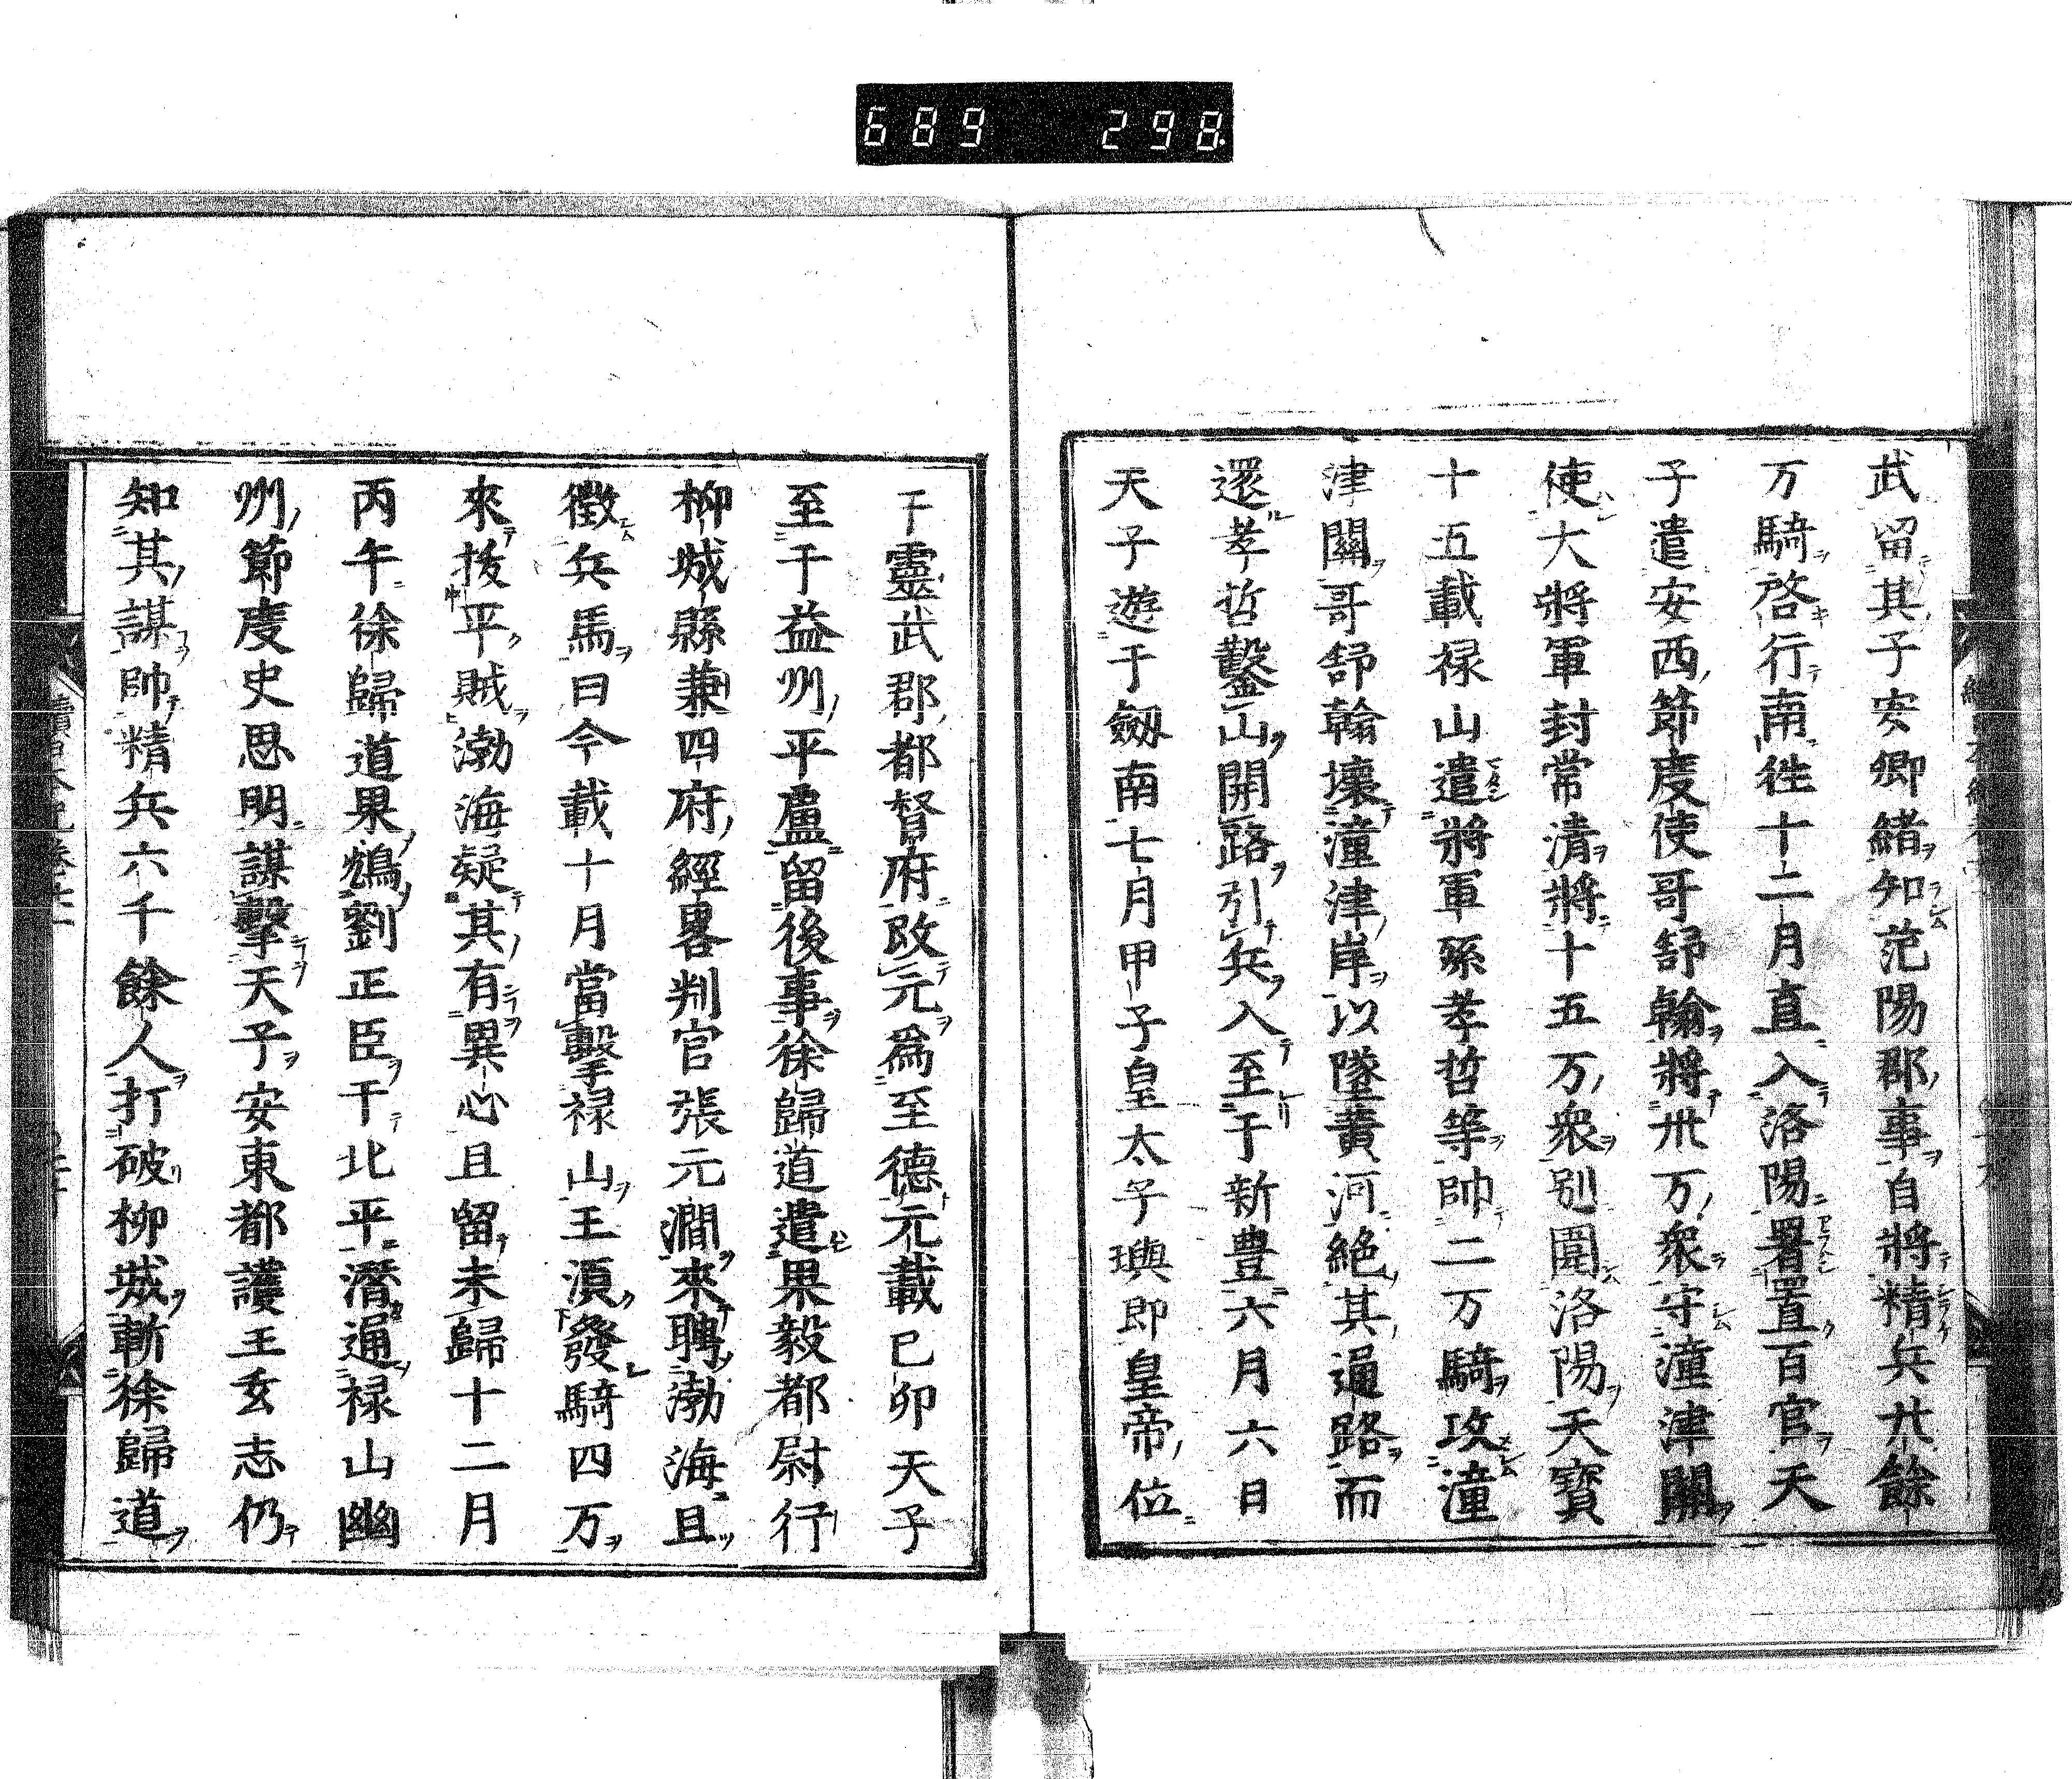 689 298
武留其子安卿緒知范陽郡事自將精兵廿餘
万騎啓行南徃十二月直入洛陽署置百官天
子遣安西節度使哥舒翰將卅万衆守潼津關
使大將軍封常清將十五万衆別圍洛陽天寳
十五載禄山遣將軍孫孝哲等帥二万騎攻潼
津關哥舒翰壞潼津岸以墜黄河絶其通路而
還孝哲鑿山開路引兵入至于新豊六月六日
天子遊于劔南七月甲子皇太子璵即皇帝位
于靈武郡都督府改元爲至德元載己卯天子
至于益州平盧留後事徐歸道遣果毅都尉行
柳城縣兼四府經畧判官張元澗來聘渤海且
徵兵馬曰今載十月當擊禄山王湏發騎四万
來援平賊渤海疑其有異心且留未歸十二月
丙午徐歸道果鴆劉正臣于北平潛通禄山幽
州節度史思明謀擊天子安東都護王玄志仍
知其謀帥精兵六千餘人打破柳城斬徐歸道